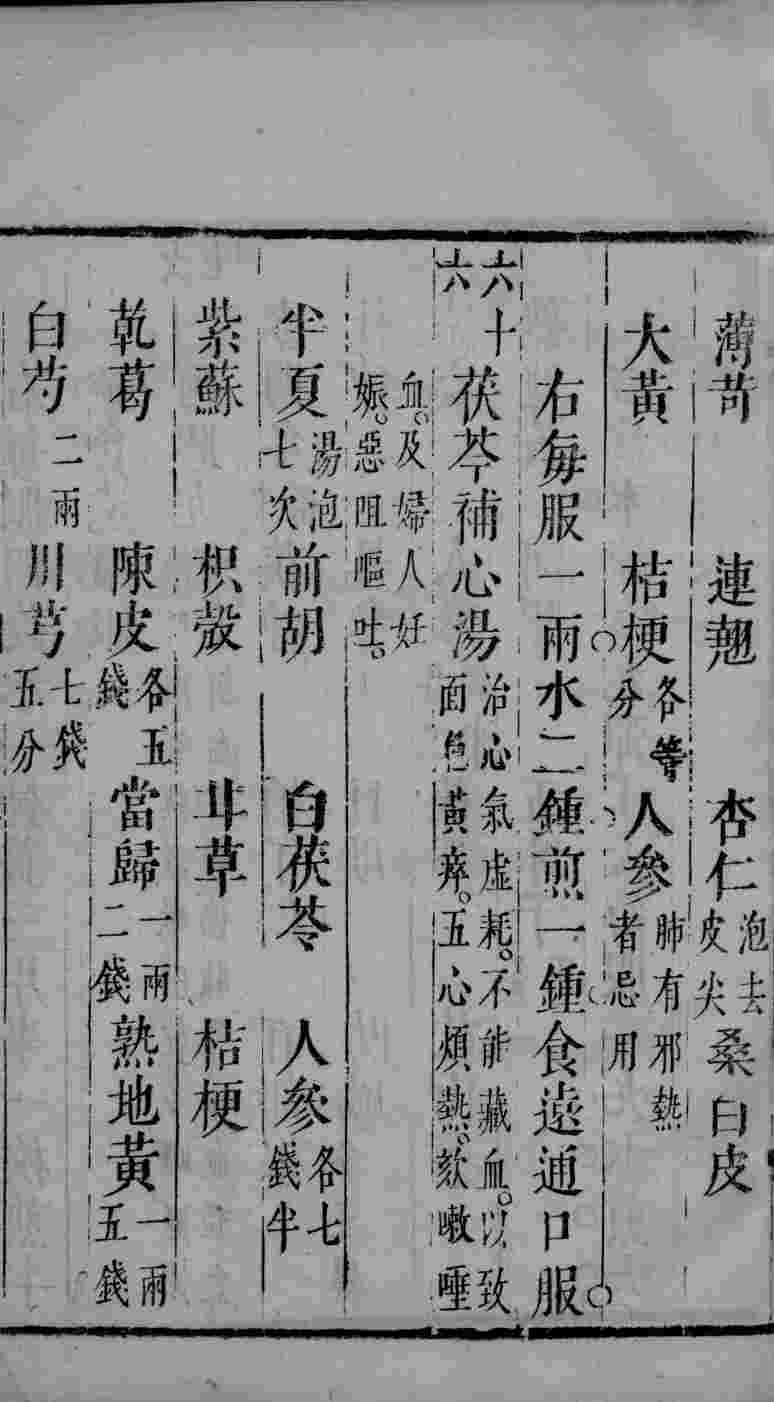 薄苛 連翹 杏仁 泡去皮尖 桑白皮
大黃 桔梗 各等分 人參 肺有邪熱者忌用
右每服一兩水二鍾煎一鍾食遠通口服
六十六 茯苓補心湯 治心氣虛耗。不能藏血。以致面色黃瘁。五心煩熱。欬嗽唾
血。及婦人妊娠。惡阻嘔吐。
半夏 湯泡七次 前胡 白茯苓 人參 各七錢半
紫蘇 枳殼 甘草 桔梗
乾葛 陳皮 各五錢 當歸 一兩二錢 熟地黃 一兩五錢
白芍 二兩 川芎 七錢五分